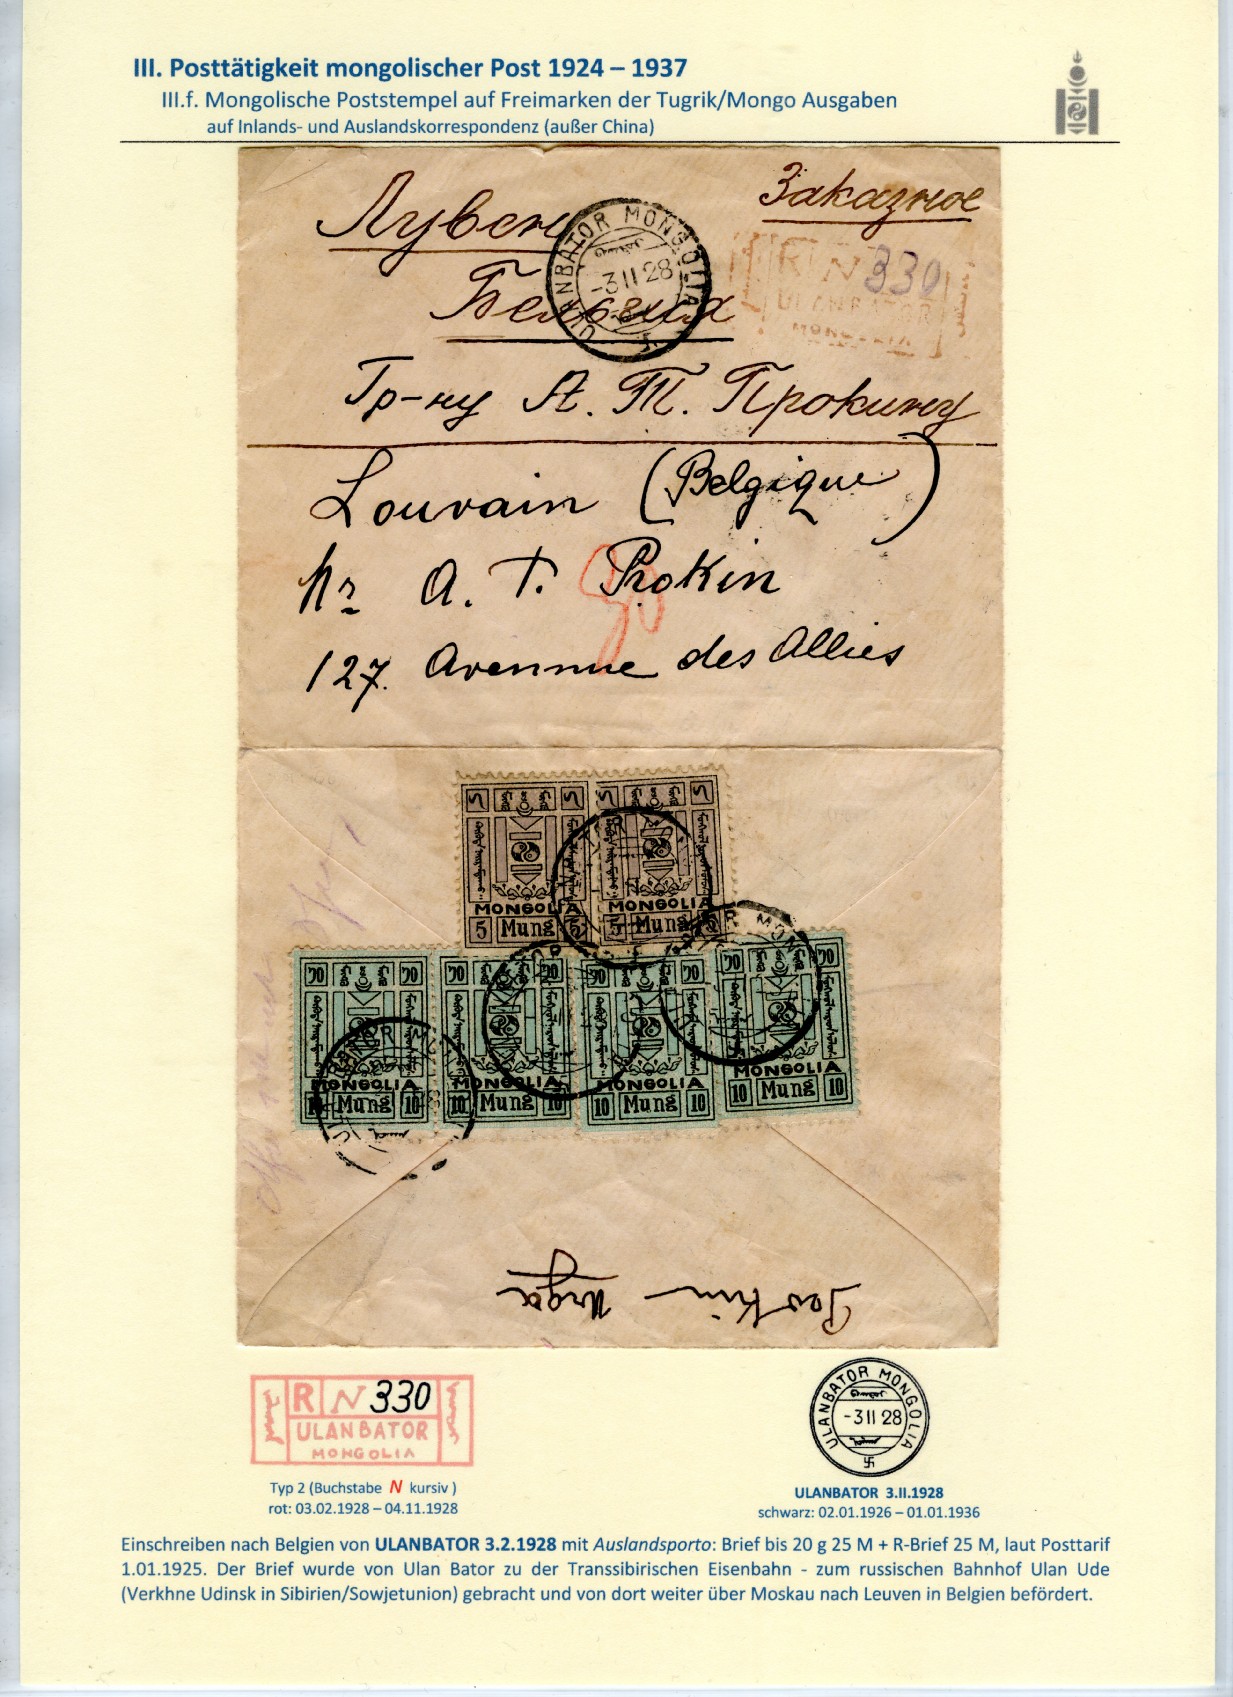 III. Posttätigkeit mongolischer Post 1924 – 1937
III.f. Mongolische Poststempel auf Freimarken der Tugrik/Mongo Ausgaben
auf Inlands- und Auslandskorrespondenz (außer China)
Заказное
Лувен
ULANBATOR MONGOLIA
-3 II 28
R N 330
ULANBATOR
MONGOLIA
Бельгия
Гр-ну А. Т. Прокину
Louvain (Belgique)
Mr A. T. Prokin
90
127. Avennue des Allies
5 5 5 5
MONGOLIA MONGOLIA
5 Mung 5 5 Mung 5
MONGOLIA MONGOLIA MONGOLIA MONGOLIA
10 Mung 10 10 Mung 10 10 Mung 10 10 Mung 10
Urga
R N 330
ULANBATOR
MONGOLIA
ULANBATOR MONGOLIA
-3 II 28
卐
Typ 2 (Buchstabe N kursiv )
rot: 03.02.1928 – 04.11.1928
ULANBATOR 3.II.1928
schwarz: 02.01.1926 – 01.01.1936
Einschreiben nach Belgien von ULANBATOR 3.2.1928 mit Auslandsporto: Brief bis 20 g 25 M + R-Brief 25 M, laut Posttarif
1.01.1925. Der Brief wurde von Ulan Bator zu der Transsibirischen Eisenbahn - zum russischen Bahnhof Ulan Ude
(Verkhne Udinsk in Sibirien/Sowjetunion) gebracht und von dort weiter über Moskau nach Leuven in Belgien befördert.